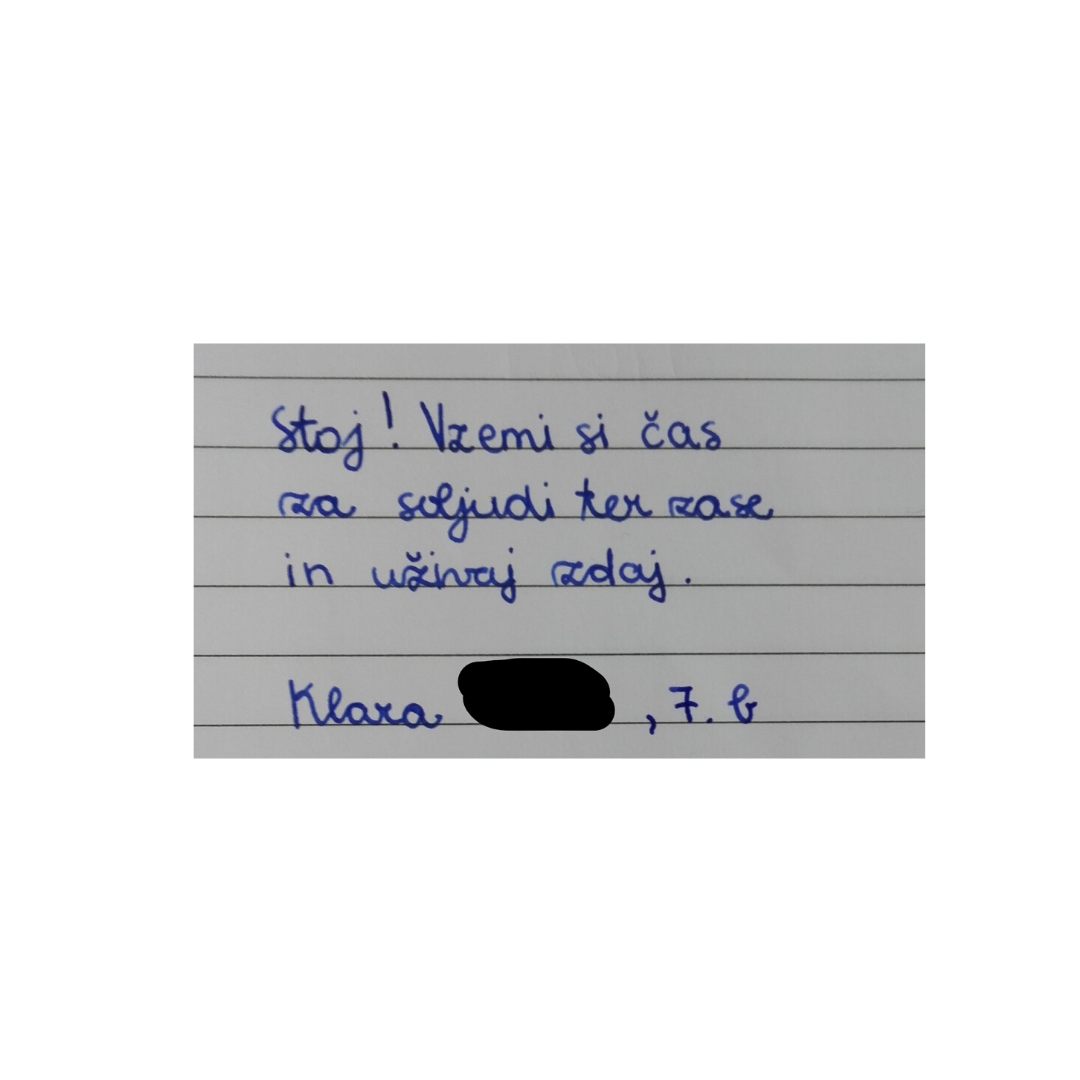 Stoj! Vzemi si čas
za soljudi ter zase
in uživaj zdaj.
Klara , 7. b